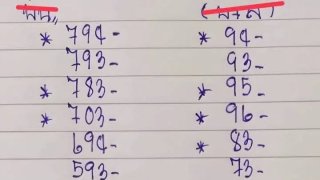 * 794- * 94-
793- 93-
* 783- * 95-
* 703- * 96-
694- * 83-
593- 73-